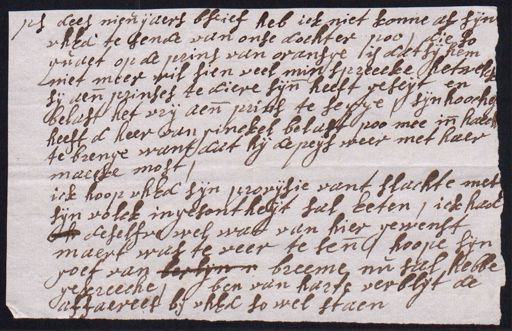 ps dees nieuijaers brief heb ick niet konne af sijn
vhed te sende van onse dochter poo, die so
op de prins van oransye is dat sij hem
niet meer wil sien veel min spreecke
sij aen prinses te diere sijn heeft geseyt en
belast het vrij aen prins te segge, sijn hoocheijt
heeft d heer van belast poo mee in haech
te brenge want dat hij de peijs weer met haer
maecke most,
ick hoop vhed sijn provijsie vant slachte met
sijn volck in gesontheijt sal eeten, ick had
deselfve wel wat van hier gewenst
maert was te veer te sen, hoope sijn
van breeme nu sal hebbe
gecreecke, ben van harte verblijt de
affaeres bij vhed so wel staen